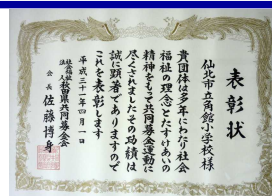 表彰状
仙北市立角館小学校様
貴団体は多年にわたり社会
福祉の理念とたすけあいの
精神をもって共同募金運動に
尽くされましたその功績は
誠に顕著でありますので
これを表彰します
平成三十一年四月一日
社会福祉法人秋田県共同募金会
会長 佐藤博身